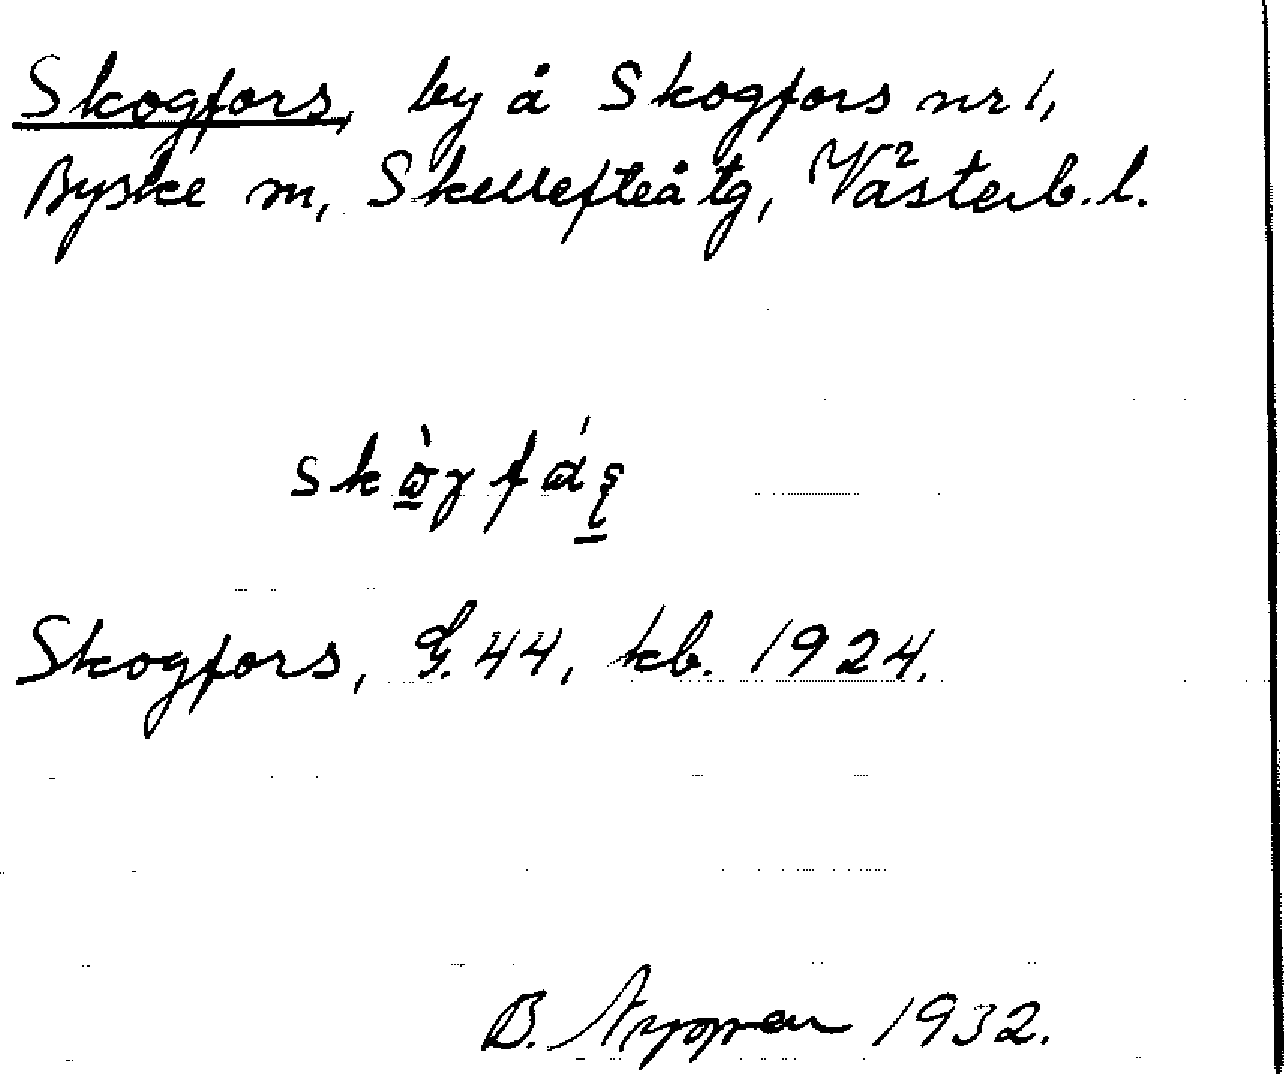 Skogfors, by å Skogfors nr 1,
Byske sn, Skellefteå tg, Västerb. l.
Skogfors, G. 44, kb. 1924.
B. 1932.